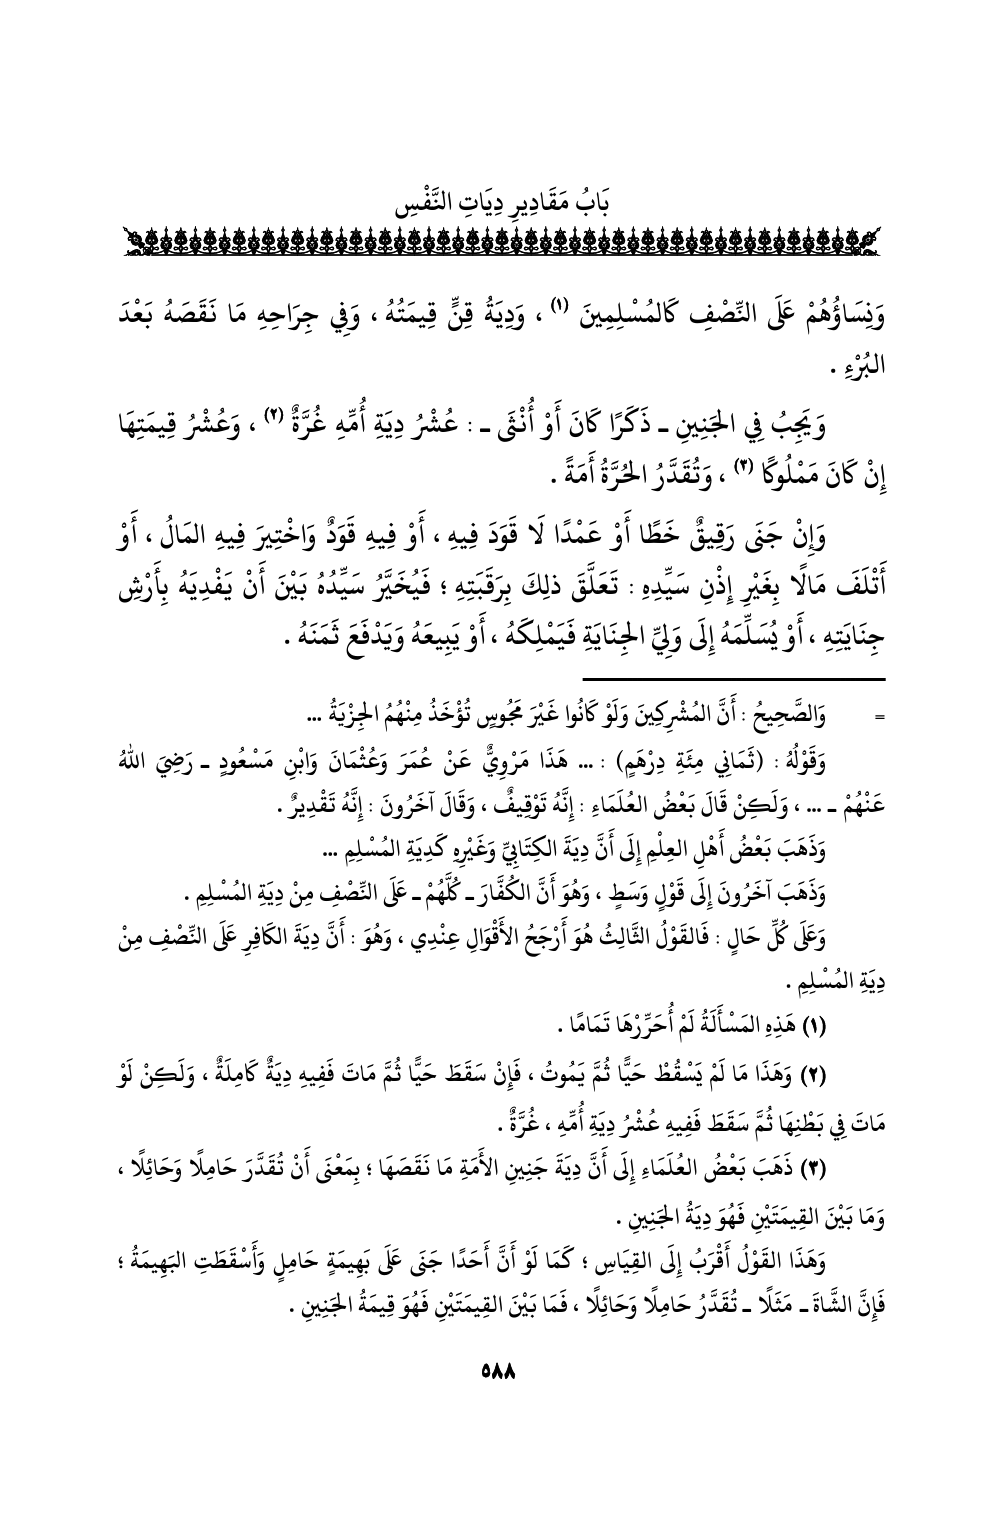 بَابُ مَقَادِيرِ دِيَاتِ النَّفْسِ
وَنِسَاؤُهُمْ عَلَى النِّصْفِ كَالمُسْلِمِينَ (١) ، وَدِيَةُ قِنٍّ قِيمَتُهُ ، وَفِي جِرَاحِهِ مَا نَقَصَهُ بَعْدَ
البُرْءِ .
وَيَجِبُ فِي الجَنِينِ ـ ذَكَرًا كَانَ أَوْ أُنْثَى ـ : عُشْرُ دِيَةِ أُمِّهِ غُرَّةٌ (٢) ، وَعُشْرُ قِيمَتِهَا
إِنْ كَانَ مَمْلُوكًا (٣) ، وَتُقَدَّرُ الحُرَّةُ أَمَةً .
وَإِنْ جَنَى رَقِيقٌ خَطًا أَوْ عَمْدًا لَا قَوَدَ فِيهِ ، أَوْ فِيهِ قَوَدٌ وَاخْتِيرَ فِيهِ المَالُ ، أَوْ
أَتْلَفَ مَالًا بِغَيْرِ إِذْنِ سَيِّدِهِ : تَعَلَّقَ ذلِكَ بِرَقَبَتِهِ ؛ فَيُخَيَّرُ سَيِّدُهُ بَيْنَ أَنْ يَفْدِيَهُ بِأَرْشِ
جِنَايَتِهِ ، أَوْ يُسَلِّمَهُ إِلَى وَلِيِّ الجِنَايَةِ فَيَمْلِكَهُ ، أَوْ يَبِيعَهُ وَيَدْفَعَ ثَمَنَهُ .
= وَالصَّحِيحُ : أَنَّ المُشْرِكِينَ وَلَوْ كَانُوا غَيْرَ مَجُوسٍ تُؤْخَذُ مِنْهُمُ الجِزْيَةُ ...
وَقَوْلُهُ : (ثَمَانِي مِئَةِ دِرْهَمٍ) : ... هَذَا مَرْوِيٌّ عَنْ عُمَرَ وَعُثْمَانَ وَابْنِ مَسْعُودٍ ـ رَضِيَ اللهُ
عَنْهُمْ ـ ... ، وَلَكِنْ قَالَ بَعْضُ العُلَمَاءِ : إِنَّهُ تَوْقِيفٌ ، وَقَالَ آخَرُونَ : إِنَّهُ تَقْدِيرٌ .
وَذَهَبَ بَعْضُ أَهْلِ العِلْمِ إِلَى أَنَّ دِيَةَ الكِتَابِيِّ وَغَيْرِهِ كَدِيَةِ المُسْلِمِ ...
وَذَهَبَ آخَرُونَ إِلَى قَوْلٍ وَسَطٍ ، وَهُوَ أَنَّ الكُفَّارَ ـ كُلَّهُمْ ـ عَلَى النِّصْفِ مِنْ دِيَةِ المُسْلِمِ .
وَعَلَى كُلِّ حَالٍ : فَالقَوْلُ الثَّالِثُ هُوَ أَرْجَحُ الأَقْوَالِ عِنْدِي ، وَهُوَ : أَنَّ دِيَةَ الكَافِرِ عَلَى النِّصْفِ مِنْ
دِيَةِ المُسْلِمِ .
(١) هَذِهِ المَسْأَلَةُ لَمْ أُحَرِّرْهَا تَمَامًا .
(٢) وَهَذَا مَا لَمْ يَسْقُطْ حَيًّا ثُمَّ يَمُوتُ ، فَإِنْ سَقَطَ حَيًّا ثُمَّ مَاتَ فَفِيهِ دِيَةٌ كَامِلَةٌ ، وَلَكِنْ لَوْ
مَاتَ فِي بَطْنِهَا ثُمَّ سَقَطَ فَفِيهِ عُشْرُ دِيَةِ أُمِّهِ ، غُرَّةٌ .
(٣) ذَهَبَ بَعْضُ العُلَمَاءِ إِلَى أَنَّ دِيَةَ جَنِينِ الأَمَةِ مَا نَقَصَهَا ؛ بِمَعْنَى أَنْ تُقَدَّرَ حَامِلًا وَحَائِلًا ،
وَمَا بَيْنَ القِيمَتَيْنِ فَهُوَ دِيَةُ الجَنِينِ .
وَهَذَا القَوْلُ أَقْرَبُ إِلَى القِيَاسِ ؛ كَمَا لَوْ أَنَّ أَحَدًا جَنَى عَلَى بَهِيمَةٍ حَامِلٍ وَأَسْقَطَتِ البَهِيمَةُ ؛
فَإِنَّ الشَّاةَ ـ مَثَلًا ـ تُقَدَّرُ حَامِلًا وَحَائِلًا ، فَمَا بَيْنَ القِيمَتَيْنِ فَهُوَ قِيمَةُ الجَنِينِ .
٥٨٨